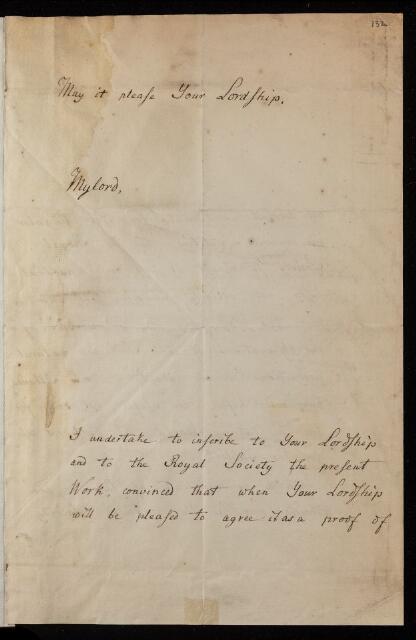 132
May it pleaſe Your Lordſhip.
Mylord,
I undertake to inſcribe to Your Lordſhip
and to the Royal Society the present
Work, convinced that when Your Lordſhip
will be pleaſed to agree it as a proof of